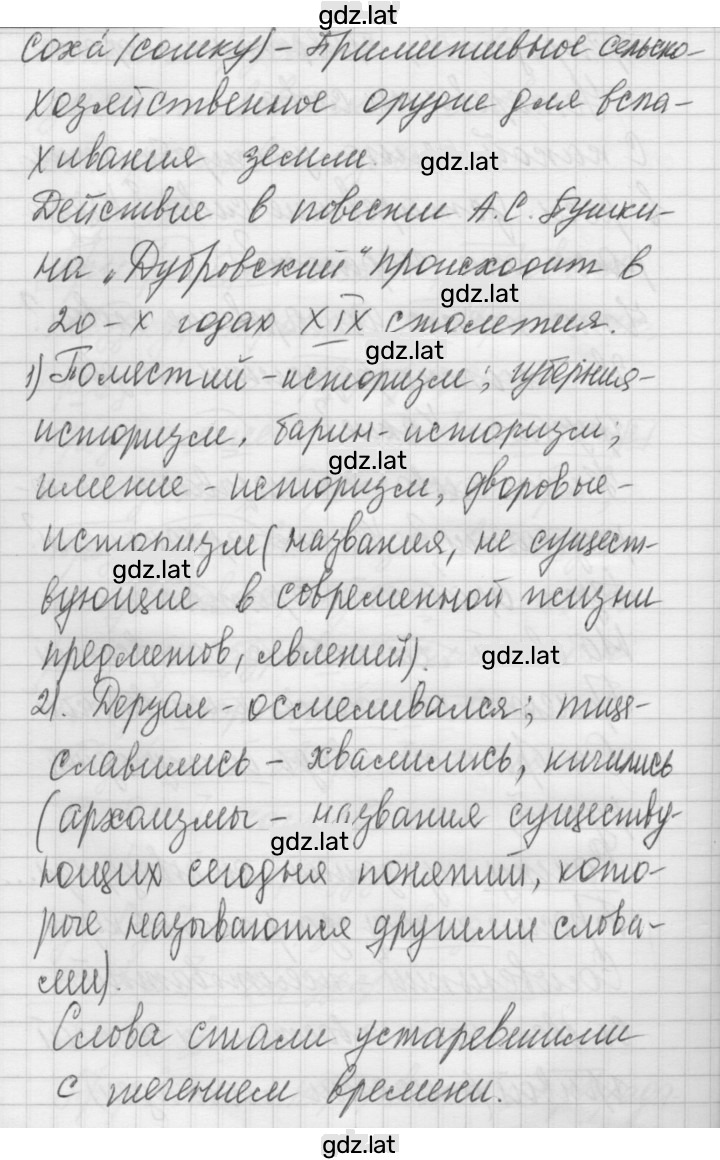 gdz.lat
соха́ (сошку) – Примитивное сельско-
хозяйственное орудие для вспа-
хивания земли.
gdz.lat
Действие в повести А.С. Пушки-
на „Дубровский“ происходит в
gdz.lat
20-х годах XIX столетия.
gdz.lat
1) Поместий – историзм; губерния –
историзм, барин – историзм;
gdz.lat
имение – историзм, дворовые –
историзм (названия, не сущест-
gdz.lat
вующие в современной жизни
предметов, явлений).
gdz.lat
2). Дерзал – осмеливался; тще-
славились – хвалились, кичились
(архаизмы – названия существу-
gdz.lat
ющих сегодня понятий, кото-
рые называются другими слова-
ми).
Слова стали устаревшими
с течением времени.
gdz.lat